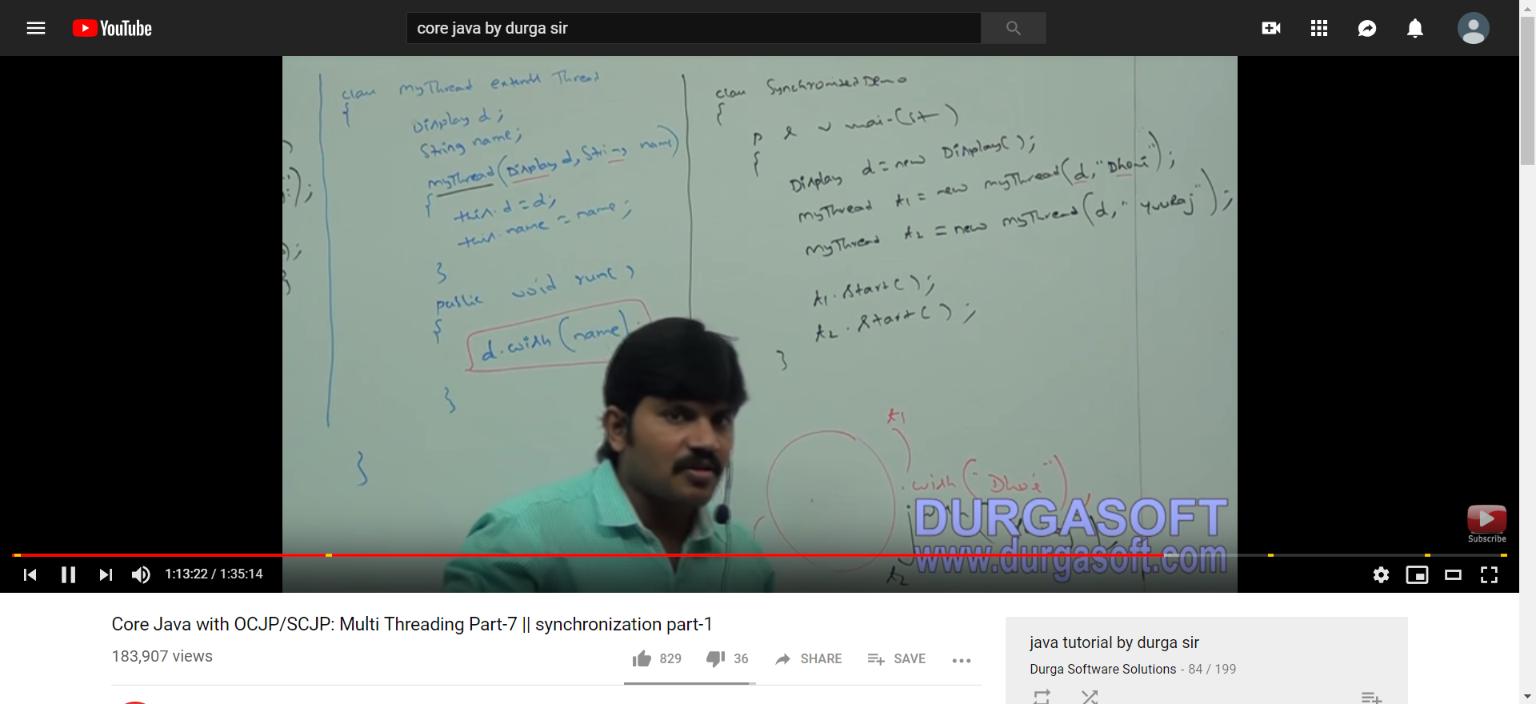 YouTube
core java by durga sir
class myThread extends Thread
{
Display d;
String name;
myThread(Display d, String name)
{
this.d = d;
this.name = name;
}
public void run()
{
d.wish(name)
}
}
class SynchronizedDemo
{
p s v main(
{
Display d = new Display();
myThread t1 = new myThread(d, "Dhoni");
myThread t2 = new myThread(d, "yuvraj");
t1.start();
t2.start();
}
t1
.wish("Dhoni")
t2
DURGASOFT
www.durgasoft.com
Subscribe
1:13:22 / 1:35:14
Core Java with OCJP/SCJP: Multi Threading Part-7 || synchronization part-1
183,907 views
829
36
SHARE
SAVE
java tutorial by durga sir
Durga Software Solutions - 84 / 199